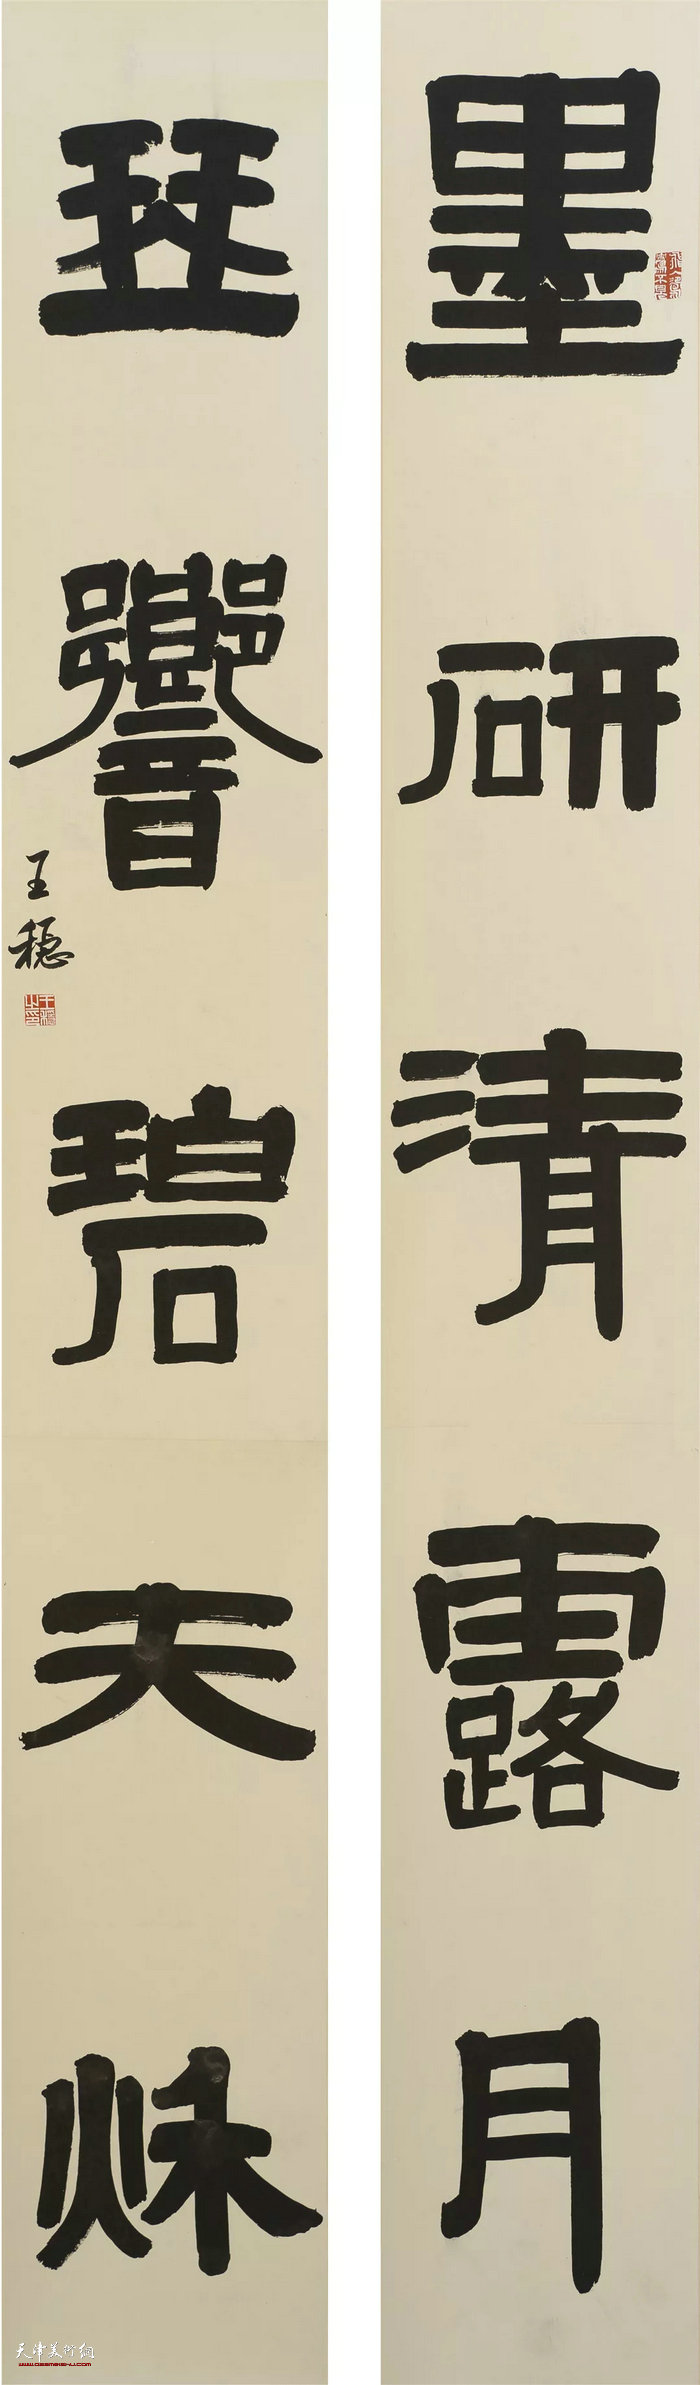 墨研清露月
琴響碧天秌
王穏
天津美術網